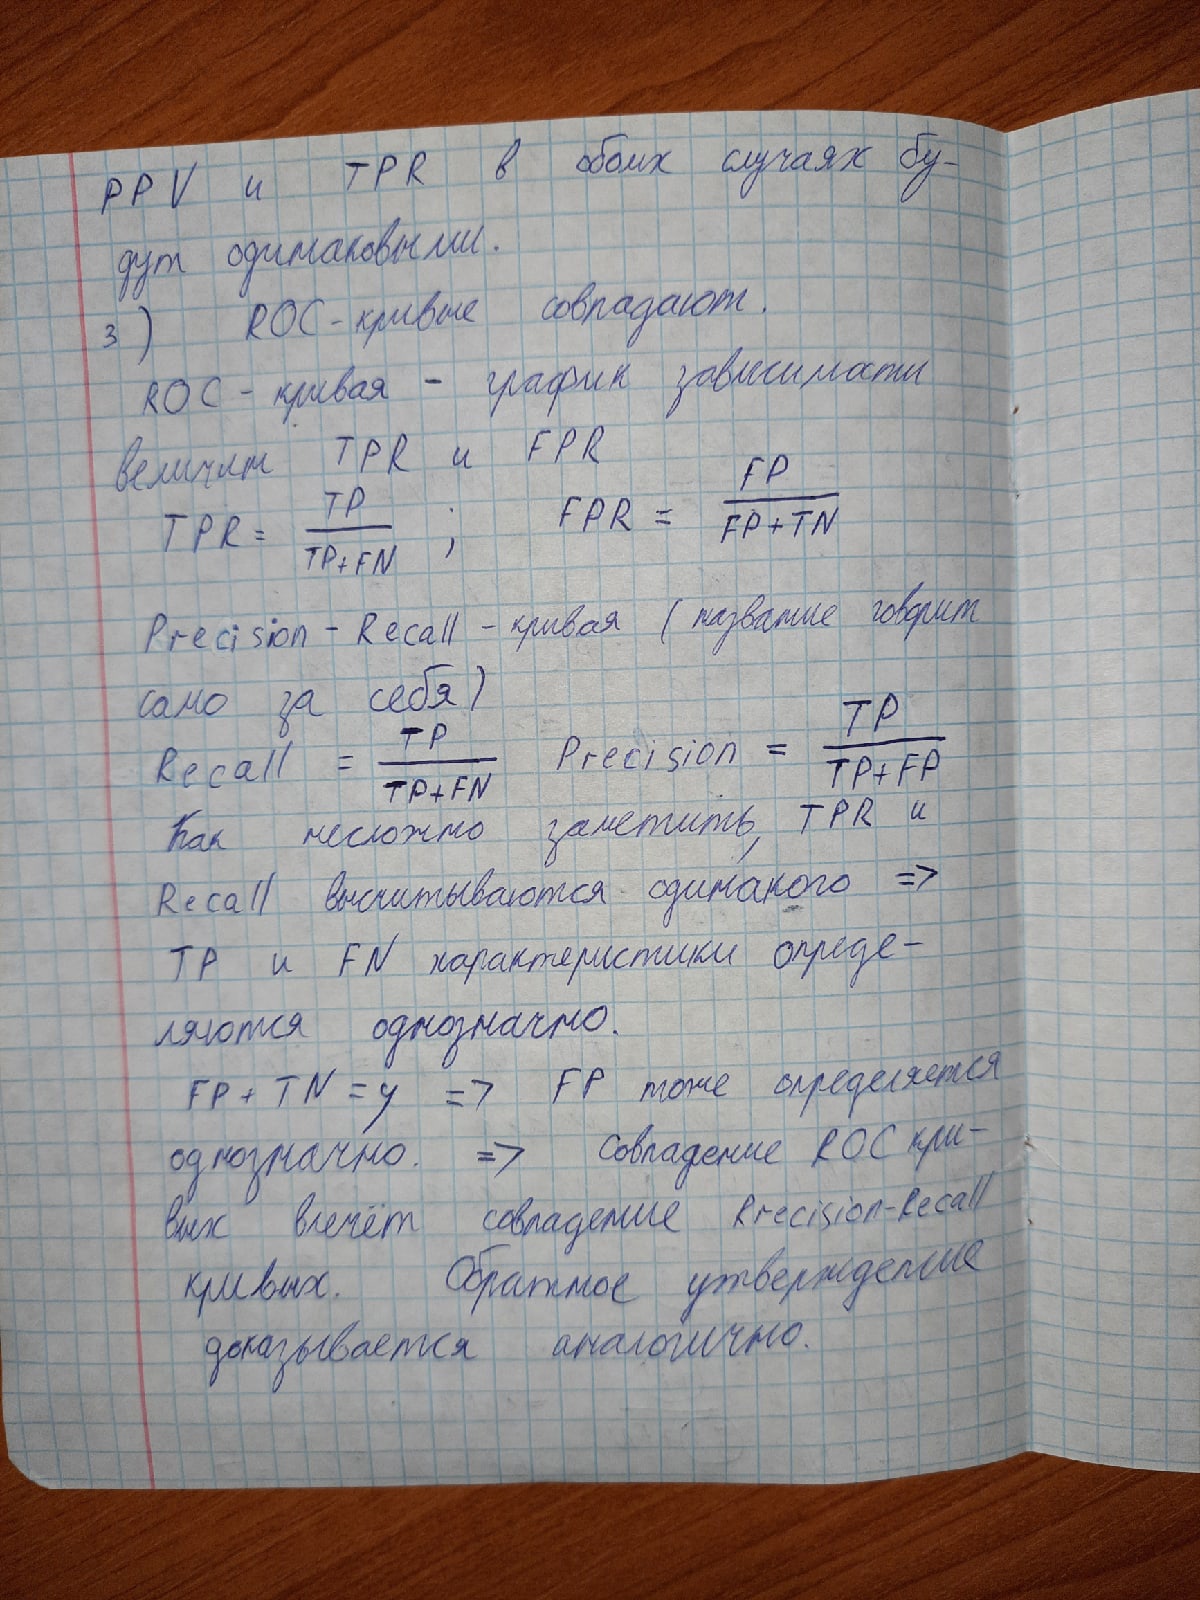 PPV и TPR в обоих случаях бу-
дут одинаковыми.
3) ROC-кривые совпадают.
ROC-кривая - график зависимости
величин TPR и FPR
TPR = TP / TP+FN ; FPR = FP / FP+TN
Precision-Recall-кривая (название говорит
само за себя)
Recall = TP / TP+FN Precision = TP / TP+FP
Как несложно заметить, TPR и
Recall высчитываются одинакого =>
TP и FN характеристики опреде-
ляются однозначно.
FP + TN = y => FP тоже определяется
однозначно. => Совпадение ROC кри-
вых влечёт совпадение Precision-Recall
кривых. Обратное утверждение
доказывается аналогично.